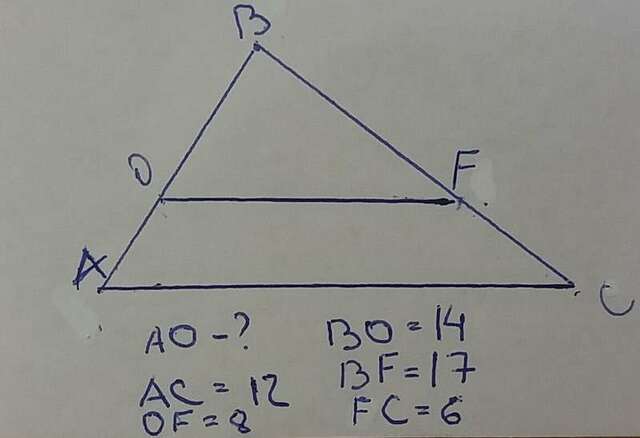 B
O
F
A
C
AO - ?
BO = 14
BF = 17
AC = 12
OF = 8
FC = 6